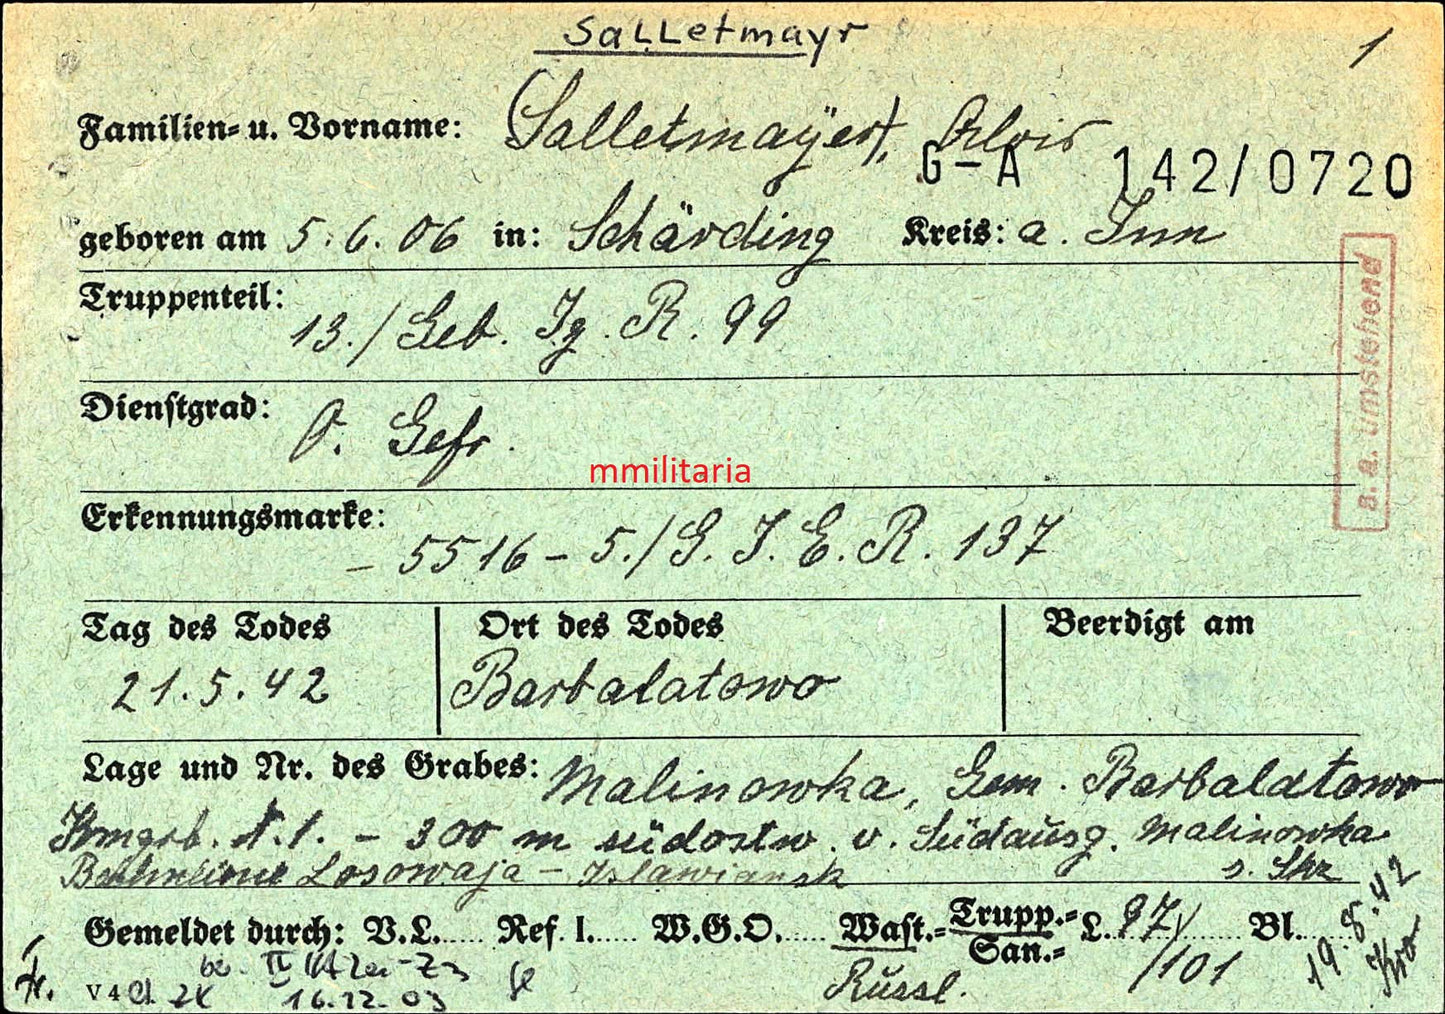 Salletmayr
1
Familien- u. Vorname: (Salletmaÿer), Alois
G-A 142/0720
geboren am 5.6.06 in: Schärding Kreis: a. Inn
Truppenteil: 13./Geb. Jg. R. 99
s. a. umstehend
Dienstgrad: O. Gefr.
mmilitaria
Erkennungsmarke: - 5516 - 5./G. J. E. R. 137
Tag des Todes Ort des Todes Beerdigt am
21.5.42 Barbalatowo
Lage und Nr. des Grabes: Malinowka, Gem. Barbalatowo
300 m südostw. v. Südausg. Malinowka
Losowaja - Islawiansk s. Skz
Gemeldet durch: V.L. Ref. I. W.G.O. Wast.- Trupp.- San.- L. 97/ Bl.
/101
Russl.
19.8.42
V 4 Cl. 2X 16.12.03